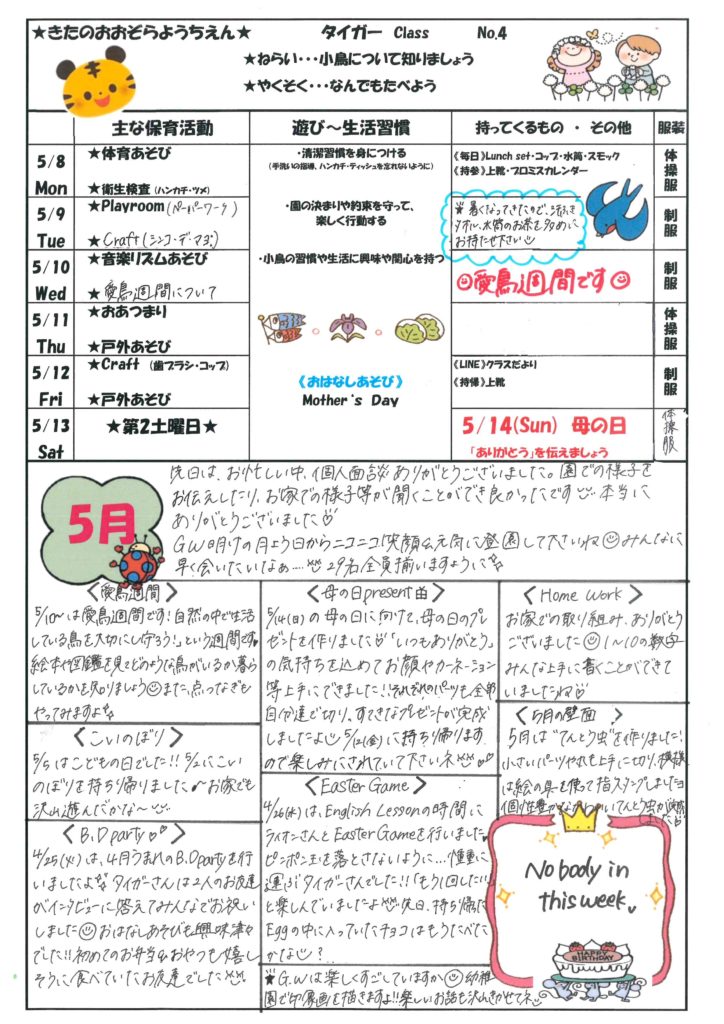 ★きたのおおぞらようちえん★
タイガー Class No.4
★ねらい・・・小鳥について知りましょう
★やくそく・・・なんでもたべよう
主な保育活動
遊び～生活習慣
持ってくるもの ・ その他
服装
5/8
Mon
★体育あそび
★衛生検査(ハンカチ・ツメ)
・清潔習慣を身につける
(手洗いの指導、ハンカチ・ティッシュを忘れないように)
《毎日》Lunch set・コップ・水筒・スモック
《持参》上靴・プロミスカレンダー
体操服
5/9
Tue
★Playroom(ペーパーワーク)
★Craft(シンコ・デ・マヨ)
・園の決まりや約束を守って、
楽しく行動する
★暑くなってきたので、汗ふき
タオル、水筒のお茶を多めに
お持たせ下さい
制服
5/10
Wed
★音楽リズムあそび
★愛鳥週間について
・小鳥の習慣や生活に興味や関心を持つ
愛鳥週間です
制服
5/11
Thu
★おあつまり
★戸外あそび
体操服
5/12
Fri
★Craft (歯ブラシ・コップ)
★戸外あそび
《おはなしあそび》
Mother's Day
《LINE》クラスだより
《持帰》上靴
制服
5/13
Sat
★第2土曜日★
5/14(Sun) 母の日
「ありがとう」を伝えましょう
体操服
5月
先日は、お忙しい中、個人面談ありがとうございました。園での様子を
お伝えしたり、お家での様子等が聞くことができ良かったです 本当に
ありがとうございました
GW明けの月よう日からニコニコ笑顔&元気に登園して下さいね みんなに
早く会いたいなぁ… 29名全員揃いますように
<愛鳥週間>
5/10～は愛鳥週間です!自然の中で生活
している鳥を大切にし守ろう!という週間です
絵本や図鑑を見てどのような鳥がいるか、暮ら
しているかを知りましょう また、点つなぎも
やってみますよ
<こいのぼり>
5/5はこどもの日でした!!5/2にこい
のぼりを持ち帰りました♪お家でも
沢山遊んだかな～
<B.D party>
4/25(火)は、4月うまれのB.D partyを行
いましたよ タイガーさんは2人のお友達
がインタビューに答えてみんなでお祝い
しました おはなしあそびも興味津々
でした!!初めてのお弁当&おやつも嬉し
そうに食べていたお友達でした
<母の日present>
5/14(日)の母の日に向けて、母の日のプレ
ゼントを作りました「いつもありがとう」
の気持ちを込めてお顔やカーネーション
等上手にできました!!それぞれのパーツも全部
自分達で切り、すてきなプレゼントが完成
しましたよ 5/12(金)に持ち帰ります
ので楽しみにされていて下さいネ
<Easter Game>
4/26(水)は、English Lessonの時間に
ライオンさんとEaster Gameを行いました
ピンポン玉を落とさないように…慎重に
運ぶタイガーさんでした!!「もう1回したい!!」
と楽しんでいましたよ 先日、持ち帰った
Eggの中に入っていたチョコはもうたべた
かな?
★G.Wは楽しくすごしていますか 幼稚
園で印象画を描きますよ!!楽しいお話も沢山きかせてネ
<Home work>
お家での取り組み、ありがとう
ございました 1～10の数字
みんな上手に書くことができて
いましたね
<5月の壁面>
5月は"てんとう虫"を作りました!
小さいパーツやれも上手に切り、模様
は絵の具を使って指スタンプしました
個性豊かなかわいいてんとう虫が完成
Nobody in
this week.
HAPPY
BIRTHDAY